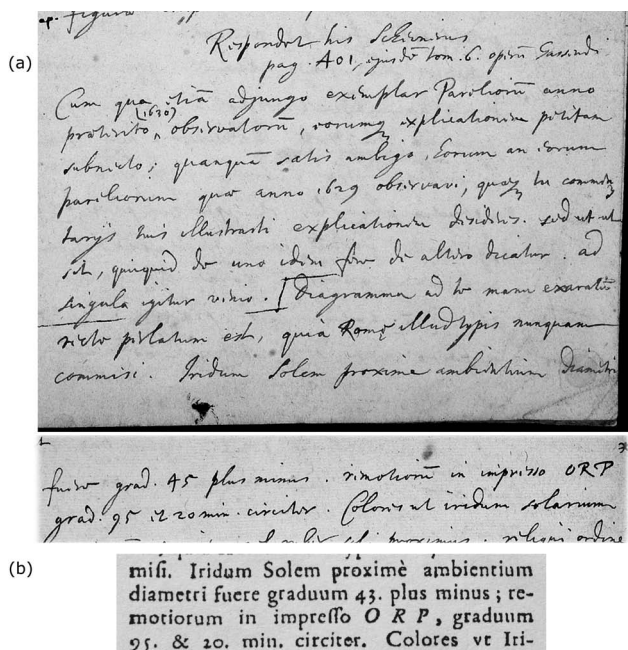 (a)
ap. figura
Respondet his Scheinerus
pag. 401, ejusdē tom. 6. operū Gassendi
Cum qua etiā adjungo exemplar Pareliorū anno
(1630)
præterito, observatorū, eorumq explicationem petitam
subnecto; quanquā satis ambigo, eorum an eorum
pareliorum quæ anno 1629 observavi, quæq tu commen
tarijs tuis illustrasti explicationem desideres. sed ut ut
sit, quicquid de uno idem fere de altero dicatur. ad
singula igitur venio. [Diagramma ad te manu exaratū
recte perlatum est, quia Romę illud typis nunquam
commisi. Iridum Solem proxime ambientium diametri
fuere grad. 45 plus minus. remotiorū in impresso ORP
grad. 95 et 20 min. circiter. Colores ut iridum solarium
proximus. reliqui ordine
(b)
misi. Iridum Solem proximè ambientium
diametri fuere graduum 43. plus minus; re-
motiorum in impresso O R P, graduum
95. & 20. min. circiter. Colores vt Iri-